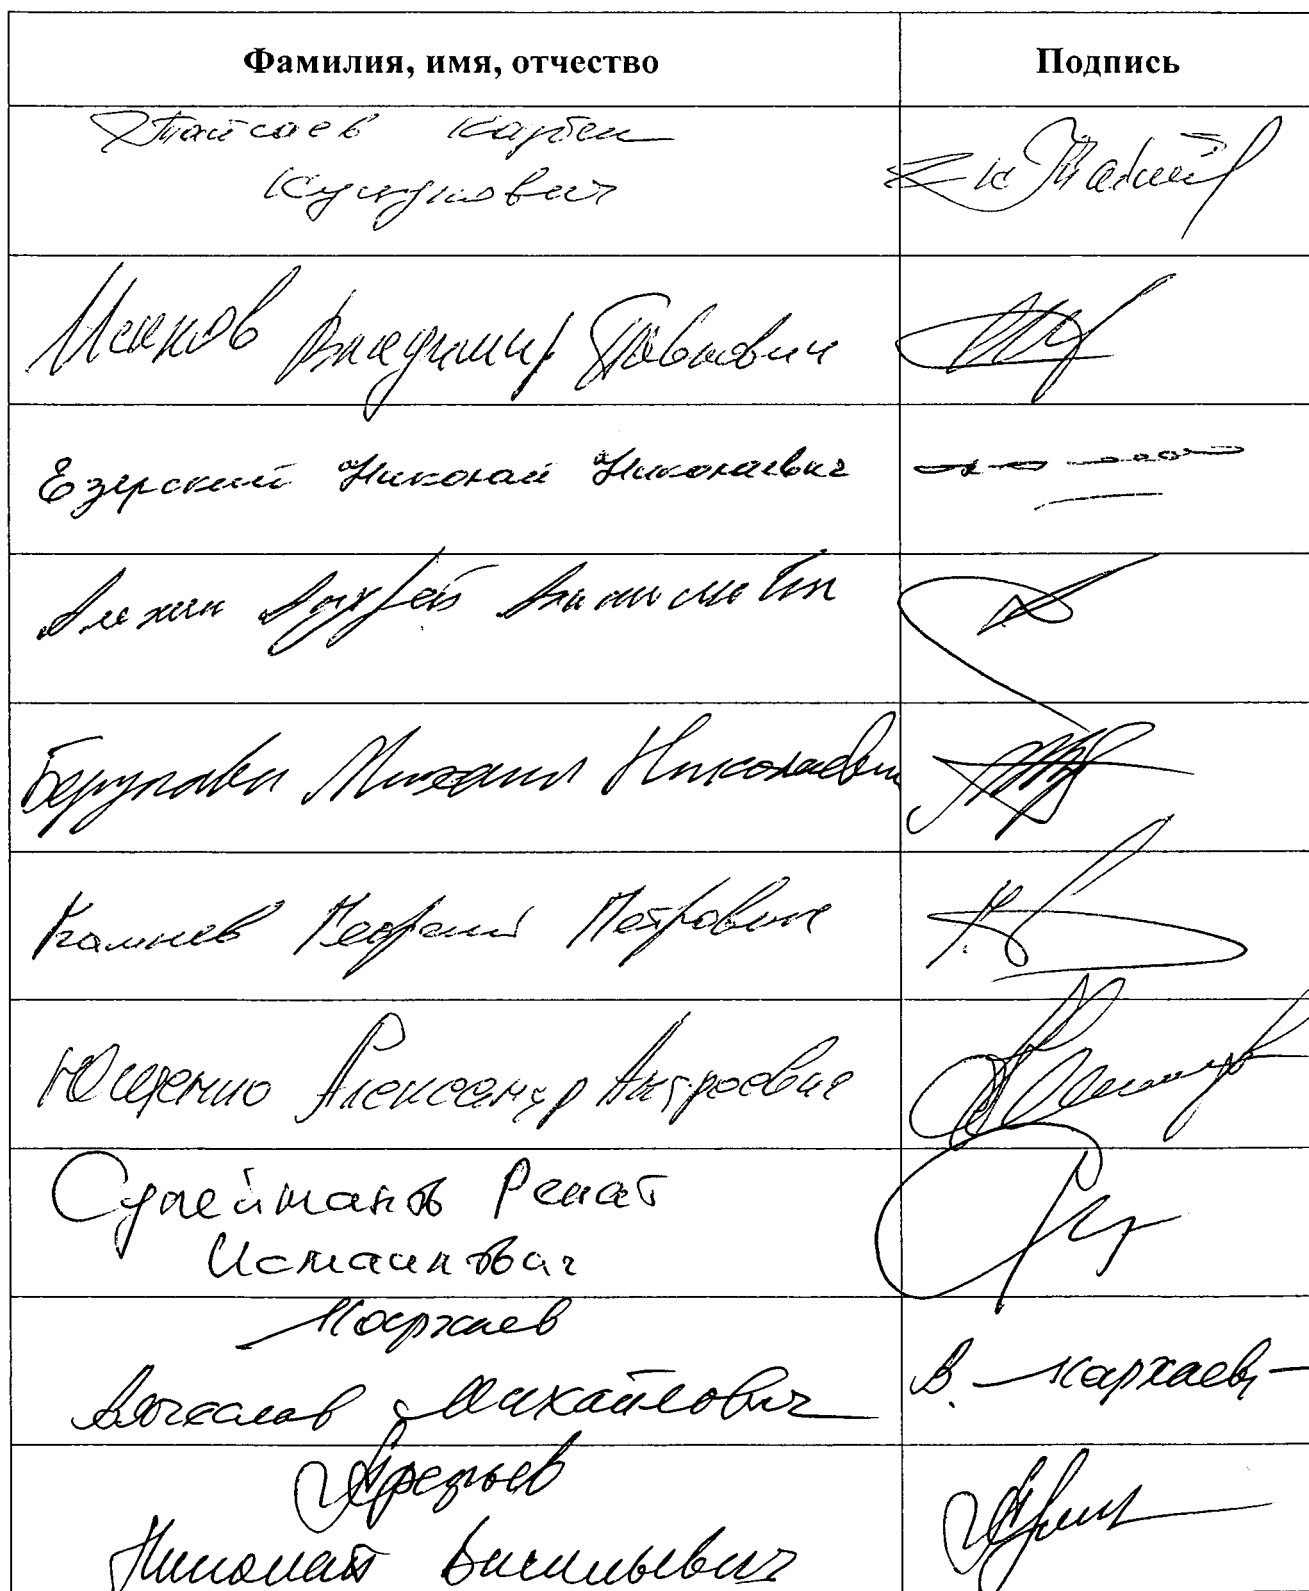 Фамилия, имя, отчество Подпись
Тайсаев Казбек
Куцукович
Исаков Владимир Павлович
Езерский Николай Николаевич
Алехин Андрей Анатольевич
Берулава Михаил Николаевич
Камнев Георгий Петрович
Ющенко Александр Андреевич
Сулейманов Ренат
Исмаилович
Мархаев
Вячеслав Михайлович В. Мархаев
Арефьев
Николай Васильевич